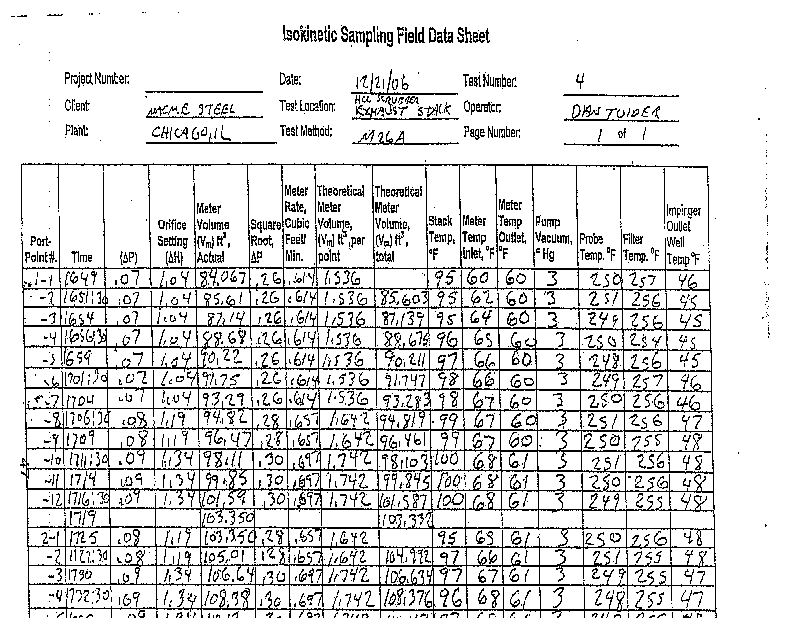 Isokinetic Sampling Field Data Sheet
Project Number: Date: 12/21/06 Test Number: 4
Client: ACME STEEL Test Location: HCL SCRUBBER EXHAUST STACK Operator:
Plant: CHICAGO, IL Test Method: M26A Page Number: 1 of 1
Port-Point #. Time (ΔP) Orifice Setting (ΔH) Meter Volume (Vm) ft³, Actual Square Root, ΔP Meter Rate, Cubic Feet/Min. Theoretical Meter Volume, (Vm) ft³, per point Theoretical Meter Volume, (Vm) ft³, total Stack Temp, °F Meter Temp Inlet, °F Meter Temp Outlet, °F Pump Vacuum, " Hg Probe Temp. °F Filter Temp. °F Impinger Outlet Well Temp °F
1-1 1649 .07 1.04 84.067 .26 .614 1.536 95 60 60 3 250 257 46
-2 1651:30 .07 1.04 85.61 .26 .614 1.536 85.603 95 62 60 3 251 256 45
-3 1654 .07 1.04 87.14 .26 .614 1.536 87.139 95 64 60 3 249 256 45
-4 1656:30 .07 1.04 88.68 .26 .614 1.536 88.675 96 65 60 3 250 254 45
-5 1659 .07 1.04 90.22 .26 .614 1.536 90.211 97 66 60 3 248 256 45
-6 1701:30 .07 1.04 91.75 .26 .614 1.536 91.747 98 66 60 3 249 257 46
-7 1704 .07 1.04 93.29 .26 .614 1.536 93.283 98 67 60 3 250 256 46
-8 1706:30 .08 1.19 94.82 .28 .657 1.642 94.819 99 67 60 3 251 256 47
-9 1709 .08 1.19 96.47 .28 .657 1.642 96.461 99 67 60 3 250 255 48
-10 1711:30 .09 1.34 98.11 .30 .697 1.742 98.103 100 68 61 3 251 256 48
-11 1714 .09 1.34 99.85 .30 .697 1.742 99.845 100 68 61 3 250 256 48
-12 1716:30 .09 1.34 101.59 .30 .697 1.742 101.587 100 68 61 3 249 255 48
1719 103.350 103.332
2-1 1725 .08 1.19 103.350 .28 .657 1.642 95 65 61 3 250 256 48
-2 1727:30 .08 1.19 105.01 .28 .657 1.642 104.992 97 66 61 3 251 255 48
-3 1730 .09 1.34 106.64 .30 .697 1.742 106.634 97 67 61 3 249 255 47
-4 1732:30 .09 1.34 108.38 .30 .697 1.742 108.376 96 68 61 3 248 255 47